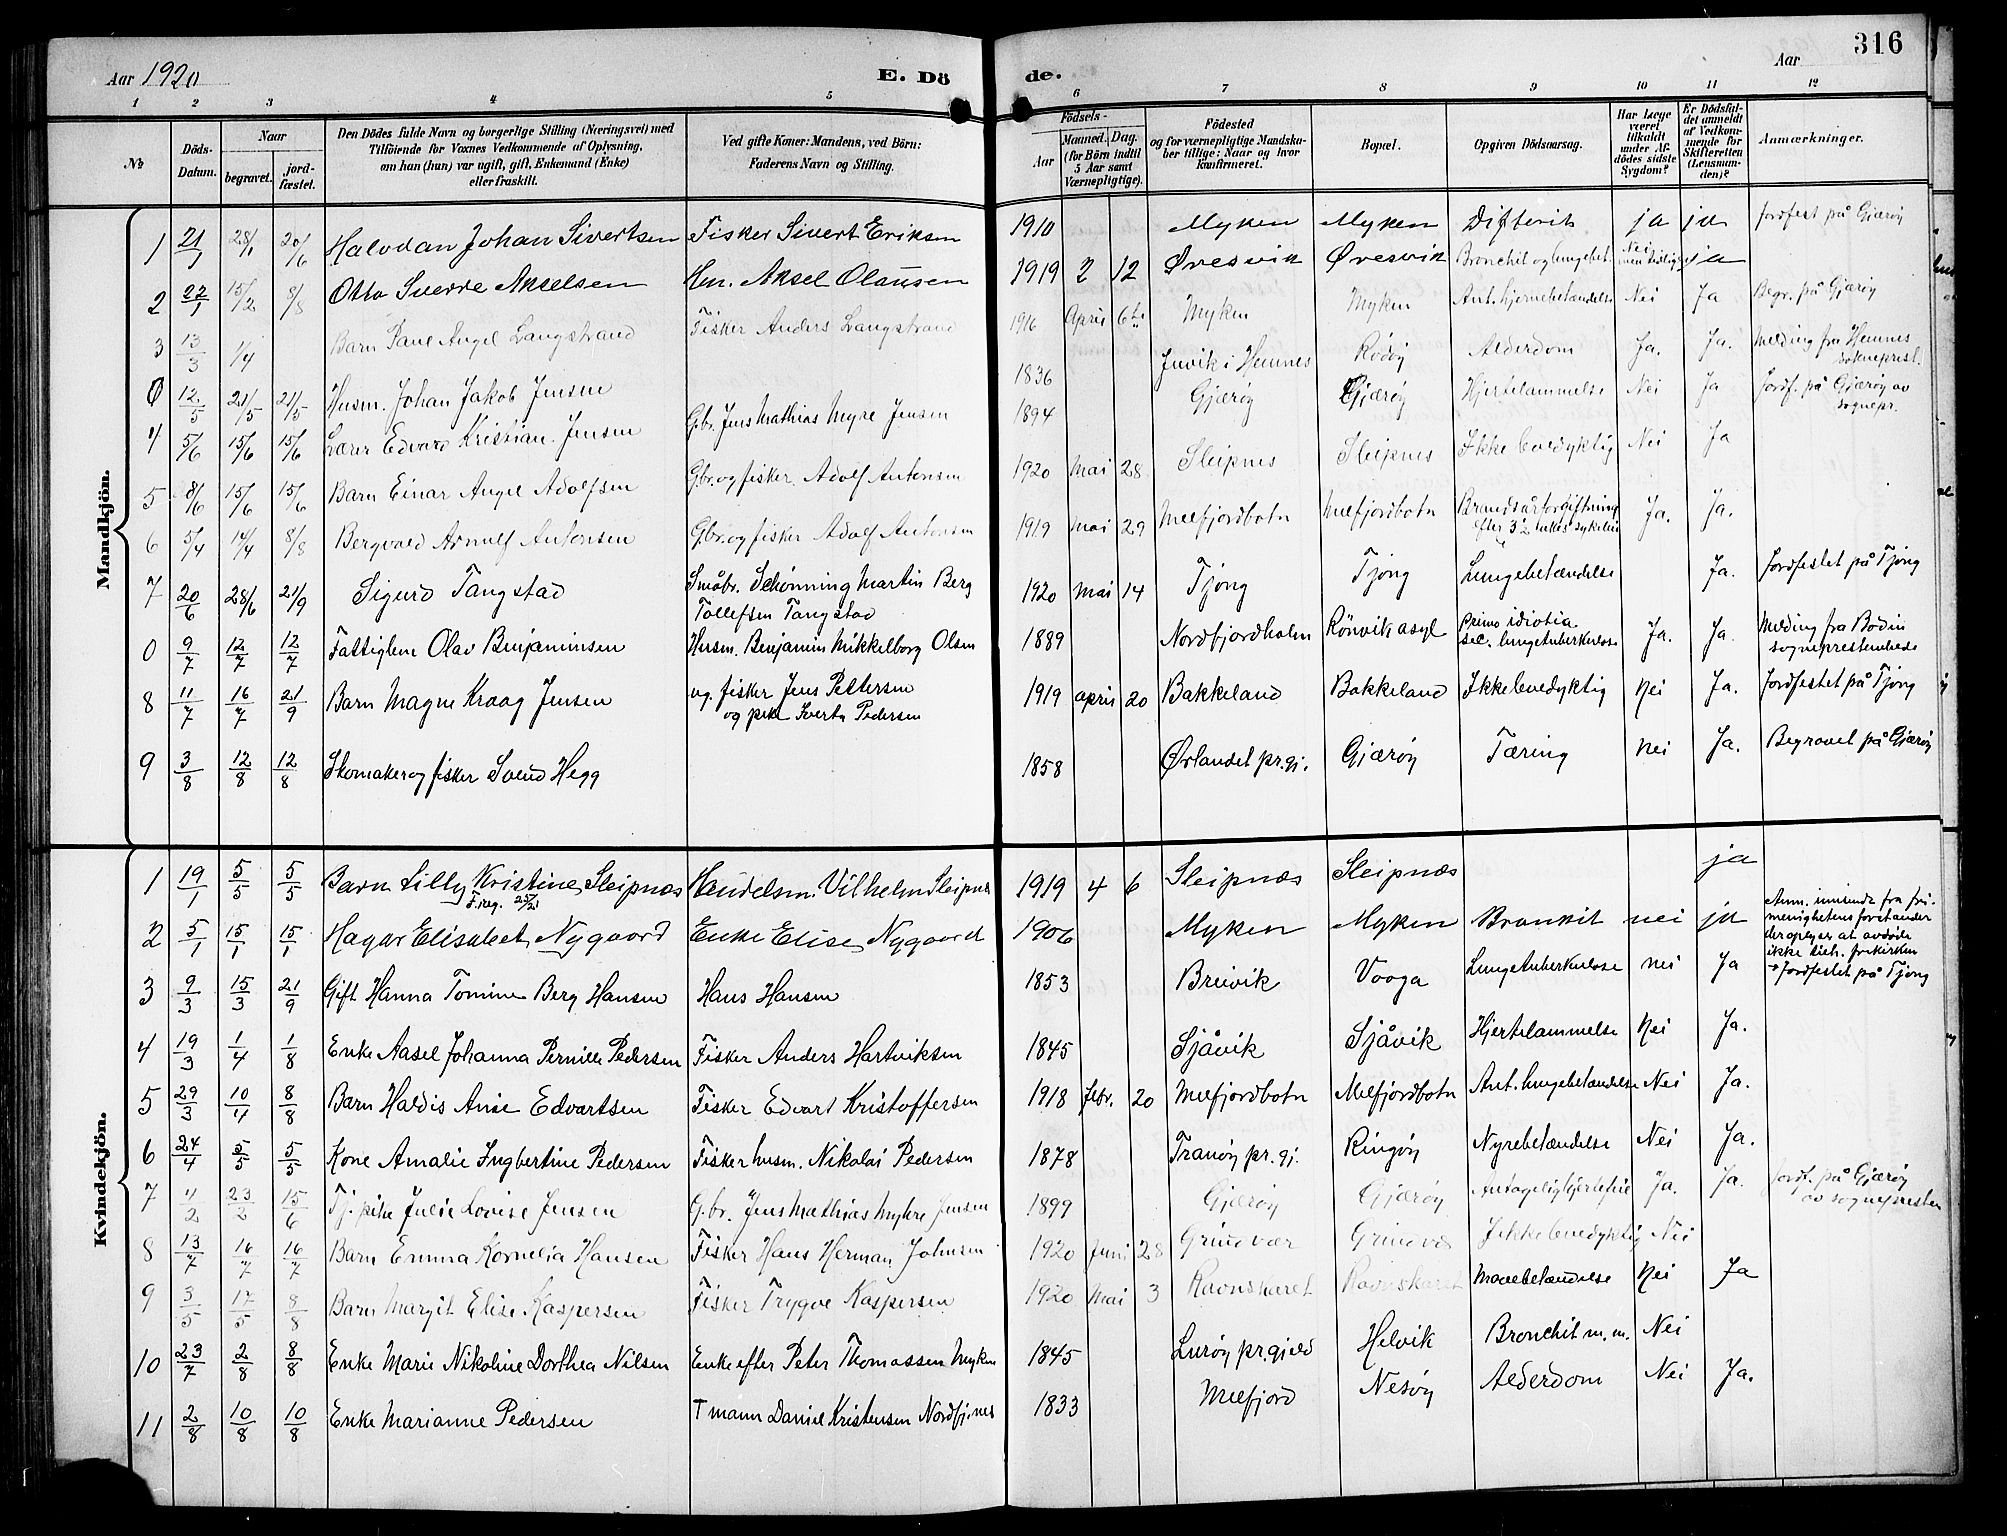 Aar 1920
E. Dö
de.
Aar
316
1 2 3 4 5 6 7 8 9 10 11 12
№
Döds-Datum.
Naar
begravet.
jord-fæstet.
Den Dödes fulde Navn og borgerlige Stilling (Næringsvei) med
Tilföiende for Voxnes Vedkommende af Oplysning,
om han (hun) var ugift, gift, Enkemand (Enke)
eller fraskilt.
Ved gifte Koner: Mandens, ved Börn:
Faderens Navn og Stilling.
Födsels-
Aar
Maaned. Dag.
(for Börn indtil
5 Aar samt
Værnepligtige).
Födested
og for værnepligtige Mandska-
ber tillige: Naar og hvor
konfirmeret.
Bopæl.
Opgiven Dödsaarsag.
Har Læge
været
tilkaldt
under Af-
dödes sidste
Sygdom?
Er Dödsfal-
det anmeldt
af Vedkom-
mende for
Skifteretten
(Lensman-
den)?
Anmærkninger.
Mandkjön.
1 21/1 28/1 20/6 Halvdan Johan Sivertsen Fisker Sivert Eriksen 1910 Myken Myken Difterit ja ja Jordfest på Gjærøy
2 22/1 15/2 8/8 Otto Sverre Akselsen Hm. Aksel Olausen 1919 2 12 Øresvik Øresvik Bronchit og lungebet. Nei ja
3 13/3 1/4 Barn Paul Angel Langstrand Fisker Anders Langstrand 1916 April 6te Myken Myken Ant. hjernebetændelse Nei Ja Begr. på Gjærøy
0 12/5 21/5 21/5 Husm. Johan Jakob Jensen 1836 Juvik i Hemnes Rödöy Alderdom Ja. Ja. Melding fra Hemnes
sokneprest.
4 5/6 15/6 15/6 Lærer Edvard Kristian Jensen G.br. Jens Mathias Myre Jensen 1894 Gjærøy Gjærøy Hjertelammelse Nei Ja Jordf. på Gjærøy av
sognepr.
5 8/6 15/6 15/6 Barn Einar Angel Adolfsen G.br. og fisker Adolf Antonsen 1920 Mai 28 Sleipnes Sleipnes Ikke levedyktig Nei Ja
6 5/4 14/4 8/8 Bergvald Arnulf Antonsen G.br. og fisker Adolf Antonsen 1919 Mai 29 Melfjordbotn Melfjordbotn Brandsårforgiftning
efter 3½ ukes sykeleie Ja. Ja.
7 20/6 28/6 21/9 Sigurd Tangstad Småbr. Schønning Martin Berg
Tollefsen Tangstad 1920 Mai 14 Tjong Tjong Lungebetændelse Ja. Jordfestet på Tjong
0 9/7 12/7 12/7 Fattiglem Olav Benjaminsen Husm. Benjamin Mikkelborg Olsen 1889 Nordfjordholm Rönvik asyl Primo idiotia
sec. lungetuberkulose Ja. Ja. Melding fra Bodin
sogneprestembede
8 11/7 16/7 21/9 Barn Magne Kraag Jensen ug. fisker Jens Pettersen
og pike Iverta Pedersen 1919 April 20 Bakkeland Bakkeland Ikke levedyktig Nei Ja. Jordfestet på Tjong
9 3/8 12/8 12/8 Skomaker og fisker Svend Hegg 1858 Ørlandet pr.gj. Gjærøy Tæring Nei Ja. Begravet på Gjærøy
Kvindekjön.
1 19/1 5/5 5/5 Barn Lilly Kristine Sleipnæs Handelsm. Vilhelm Sleipnæs 1919 4 6 Sleipnæs Sleipnæs ja
2 5/1 15/1 15/1 Hagar Elisabet Nygaard Enke Elise Nygaard 1906 Myken Myken Bronkit nei ja Anm. innsendt fra fri-
menighetens forstander
der opgir at avdøde
ikke tilh. frikirken
3 9/3 15/3 21/9 Gift Hanna Tomine Berg Hansen Hans Hansen 1853 Breivik Vaaga Lungetuberkulose nei Ja Jordfestet på Tjong
4 19/3 1/4 1/8 Enke Aasel Johanna Pernille Pedersen Fisker Anders Hartviksen 1845 Sjåvik Sjåvik Hjertelammelse Nei Ja.
5 29/3 10/4 8/8 Barn Haldis Anie Edvartsen Fisker Edvart Kristoffersen 1918 febr. 20 Melfjordbotn Melfjordbotn Ant. lungebetændelse Nei Ja.
6 24/4 5/5 5/5 Kone Amalie Ingbertine Pedersen Fisker husm. Nikolai Pedersen 1878 Tranöy pr.gj. Ringöy Nyrebetændelse Nei Ja.
7 4/2 23/2 15/6 Tj. pike Julie Lovise Jensen G.br. Jens Mathias Myhre Jensen 1899 Gjærøy Gjærøy Antagelig hjertefeil Ja. Ja. Jordf. på Gjærøy
av sognepresten
8 13/7 16/7 16/7 Barn Emma Kornelia Hansen Fisker Hans Herman Johnsen 1920 Juni 28 Grindvær Grindvær Ikke levedyktig Nei
9 3/5 17/5 8/8 Barn Margit Elise Kaspersen Fisker Trygve Kaspersen 1920 Mai 3 Ravnskaret Ravnskaret Mavebetændelse Nei Ja
10 23/7 2/8 8/8 Enke Marie Nikoline Dorthea Nilsen Enke efter Peter Thomassen Myken 1845 Luröy pr.gjeld Helvik Bronchit m.m. Nei
11 2/8 10/8 10/8 Enke Marianne Pedersen † mann Daniel Kristensen Nordfj.nes 1833 Melfjord Nesöy Alderdom Nei Ja.